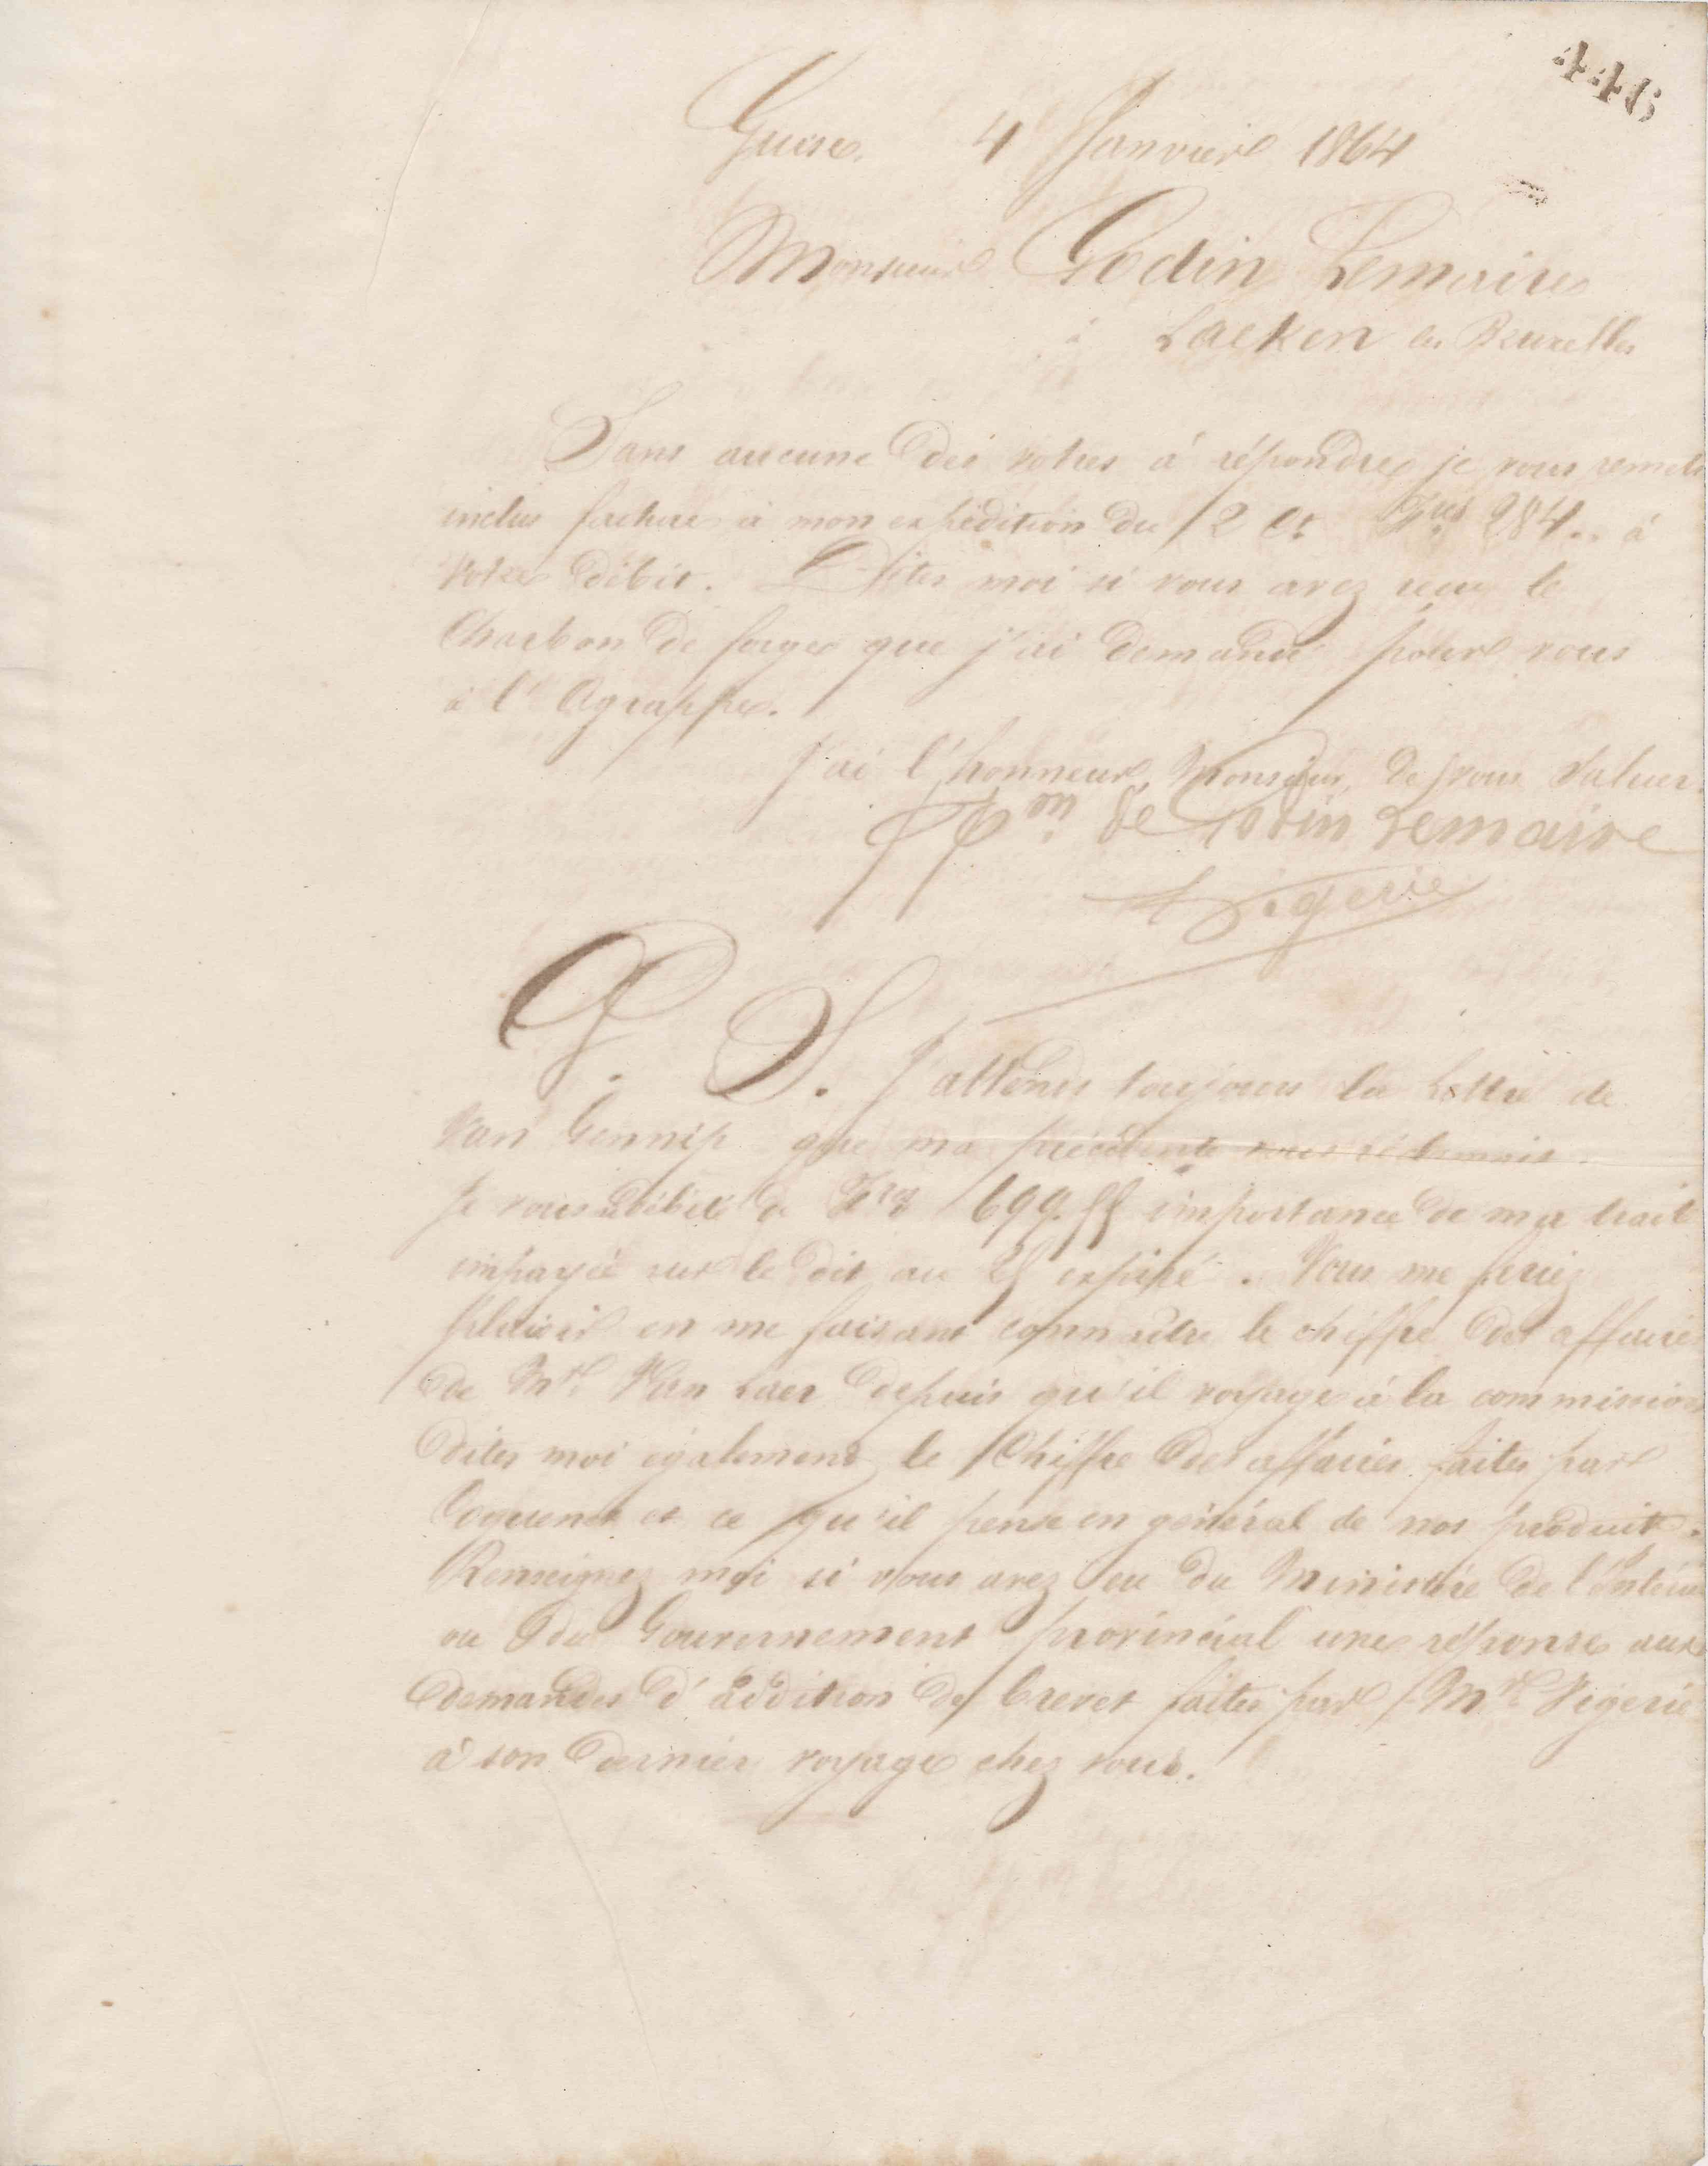 446
Guise, 4 Janvier 1864
Monsieur Godin Lemaire
à Laeken les Bruxelles
Sans aucune des votres à répondre je vous remets
inclus facture à mon expédition du 2 Ct Frs 284.. à
votre débit. Dites moi si vous avez reçu le
Charbon de forge que j'ai demandé pour vous
à l'Agrappe.
J'ai l'honneur, Monsieur, de vous saluer.
Pon de Godin Lemaire
Vigerie
P. S. J'attends toujours la lettre de
Van Gennip que ma précédente vous réclamais.
Je vous débite de Frs 699.55 importance de ma traite
impayée sur le dit au 25 expiré. Vous me feriez
plaisir en me faisant connaître le chiffre des affaires
de Mr Van Laer depuis qu'il voyage à la commission
dites moi également le Chiffre des affaires faites par
et ce qu'il pense en général de nos produits.
Renseignez moi si vous avez eu du Ministère de l'Intérieur
ou du Gouvernement provincial une réponse aux
demandes d'addition de brevet faites par Mr Vigerie
à son dernier voyage chez vous.